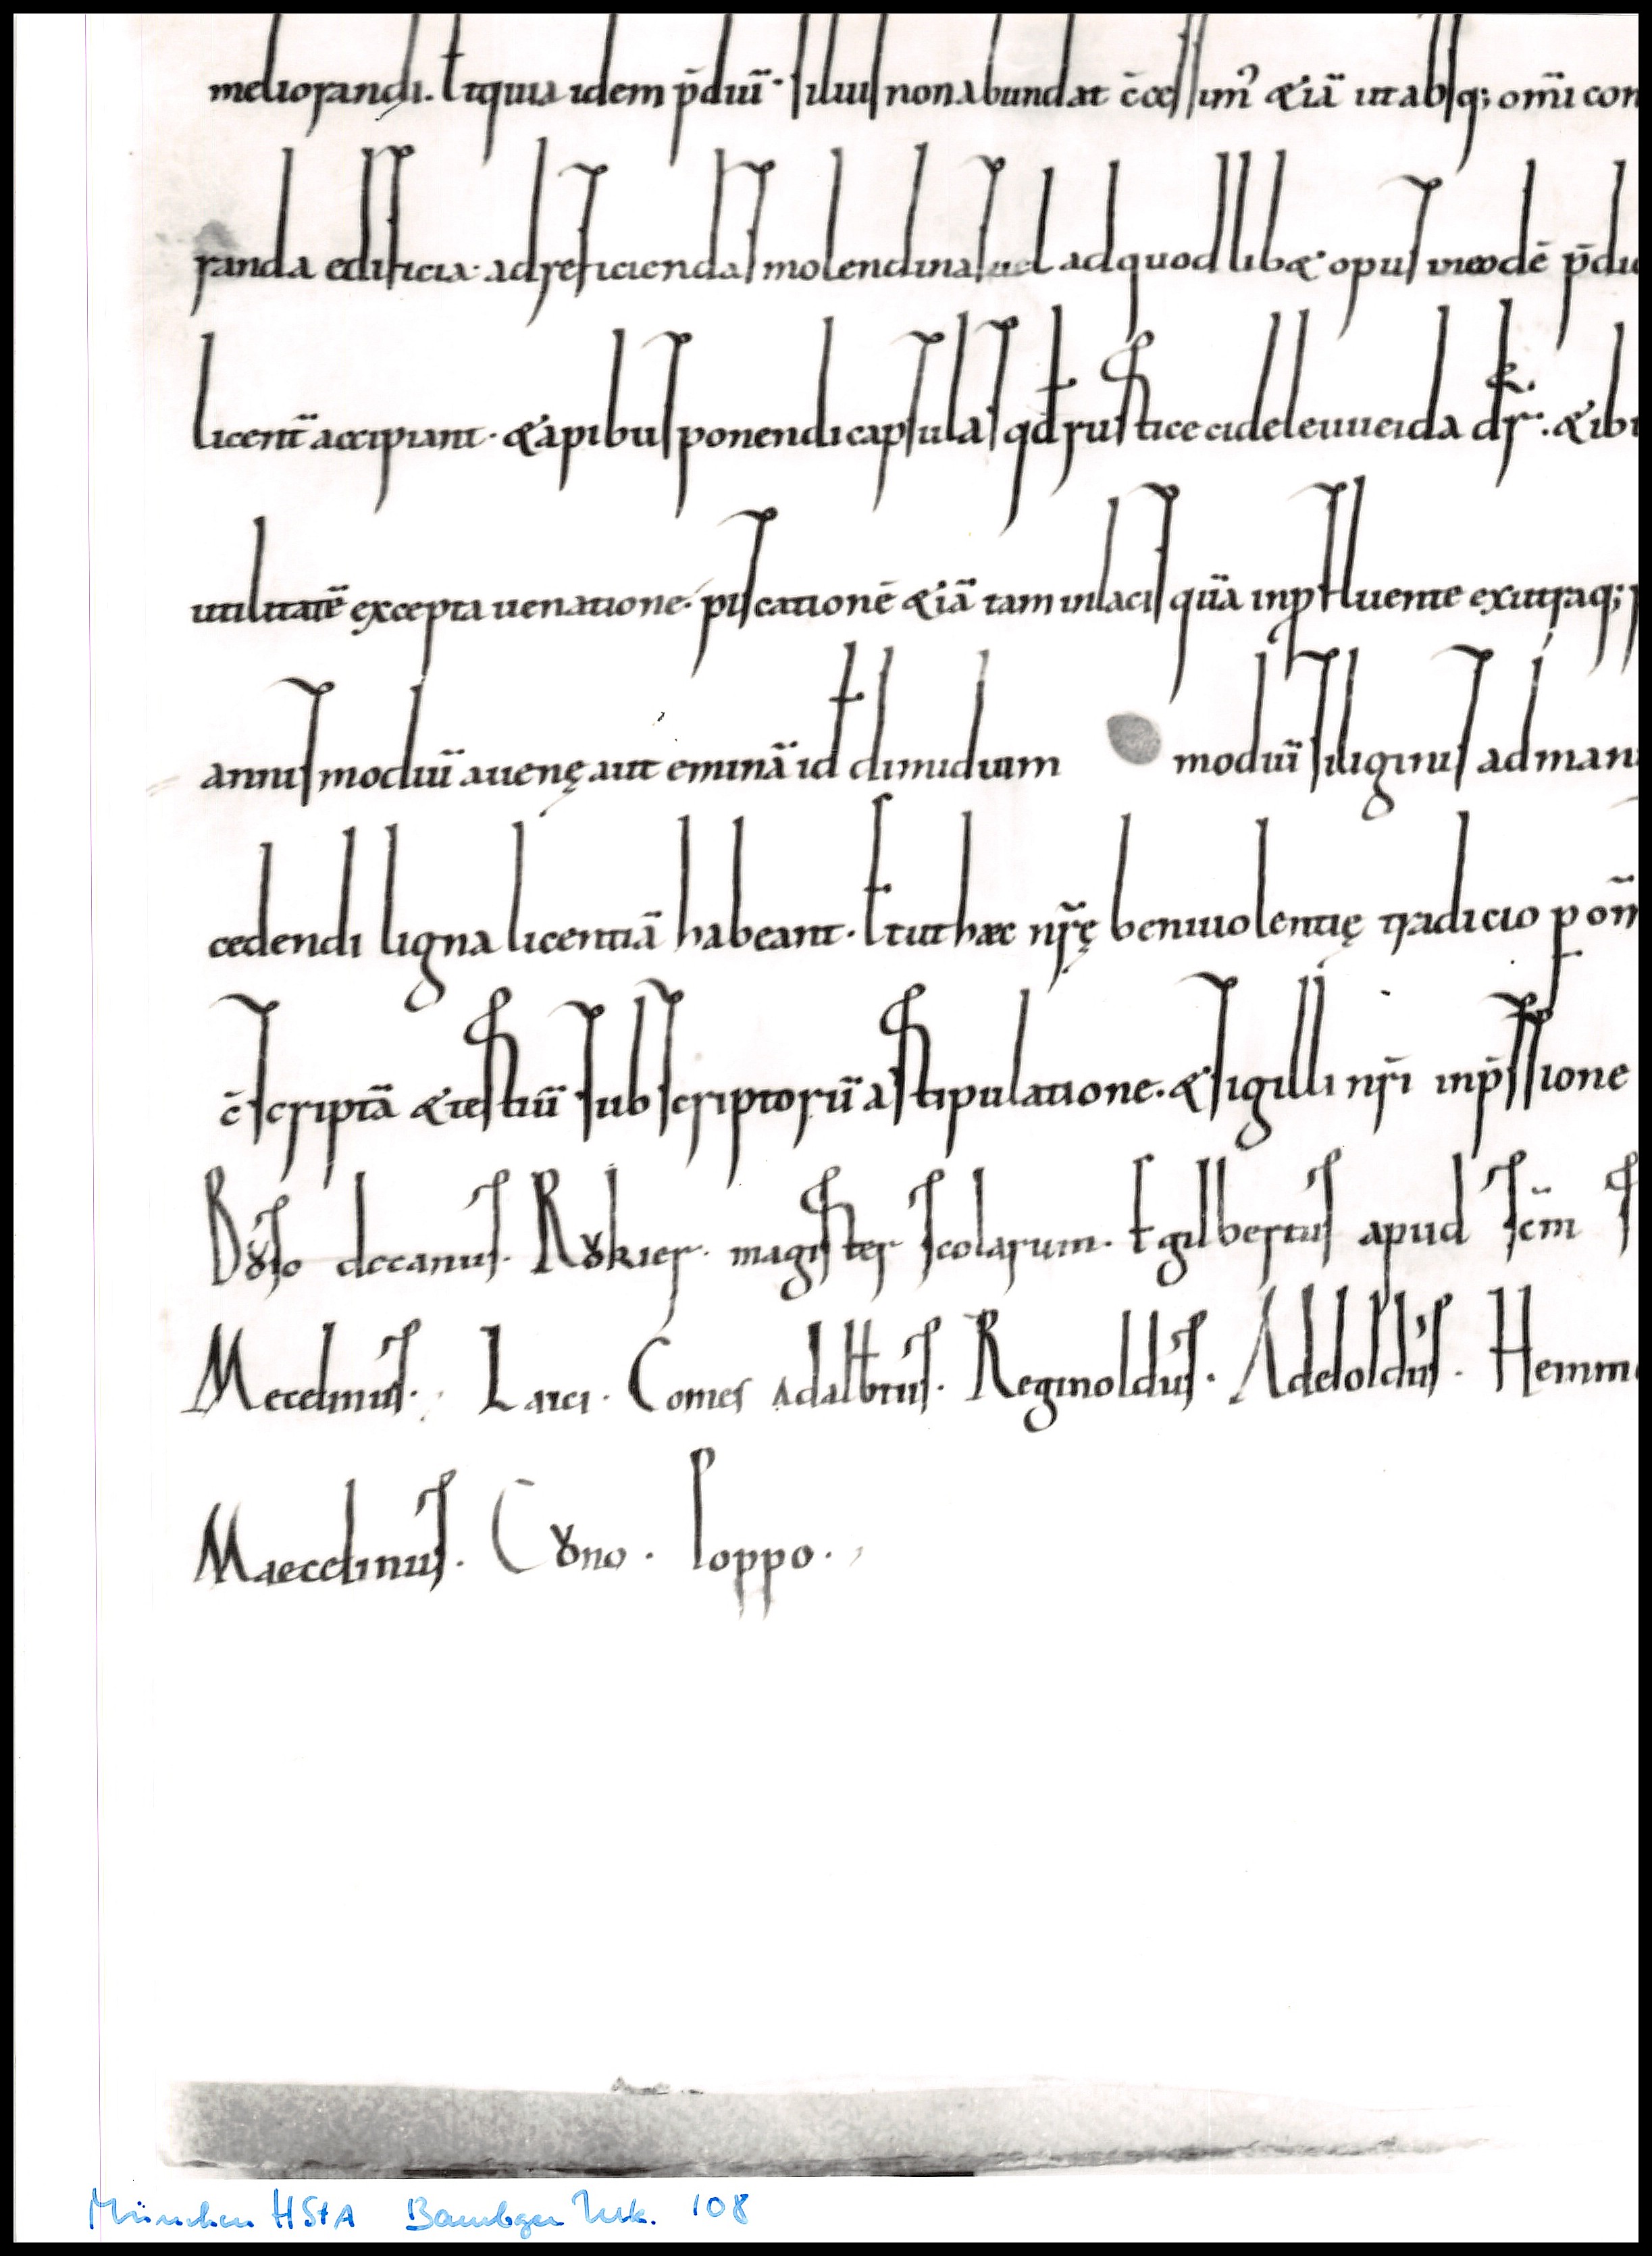 meliorandi. Et quia idem p̄diū siluis non abundat c̄cessim᾽ &iā ut absq; om̄i con
randa edificia· ad reficienda molendina uel ad quodlib& opus in eodē p̄diu
licentiā accipiant· & apibus ponendi capsulas qđ rustice cidelevueida dr̄. & ibi
utilitatē excepta uenatione· piscationē &iā tam in lacis quā in p̱fluente ex utraq;
annis modiū auenę aut eminā id ÷ dimidium modiū siliginis ad man
cedendi ligna licentiā habeant. Et ut haec nr̄ę beniuolentię tradicio p om̄
c̄scriptā & testiū subscriptorū astipulatione· & sigilli nr̄i inp̄ssione
Bỏso decanus. Rỏker· magister scolarum. Egilbertus apud scm̄
Mecelinus. Laici. Comes Adalbt̄us. Reginoldus. Adeloldus. Hemm
Maecelinus. Cỏno. Poppo.
München HStA Bamberger Urk. 108